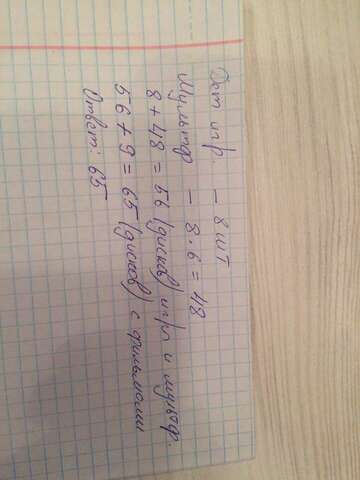 Дет игр. - 8 шт
Мультф - 8 · 6 = 48
8 + 48 = 56 (дисков) игр и мультф.
56 + 9 = 65 (дисков) с фильмами
Ответ: 65